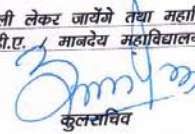 ली लेकर जायेंगे तथा महावि
डी.ए. / मानदेय महाविद्यालय
कुलसचिव